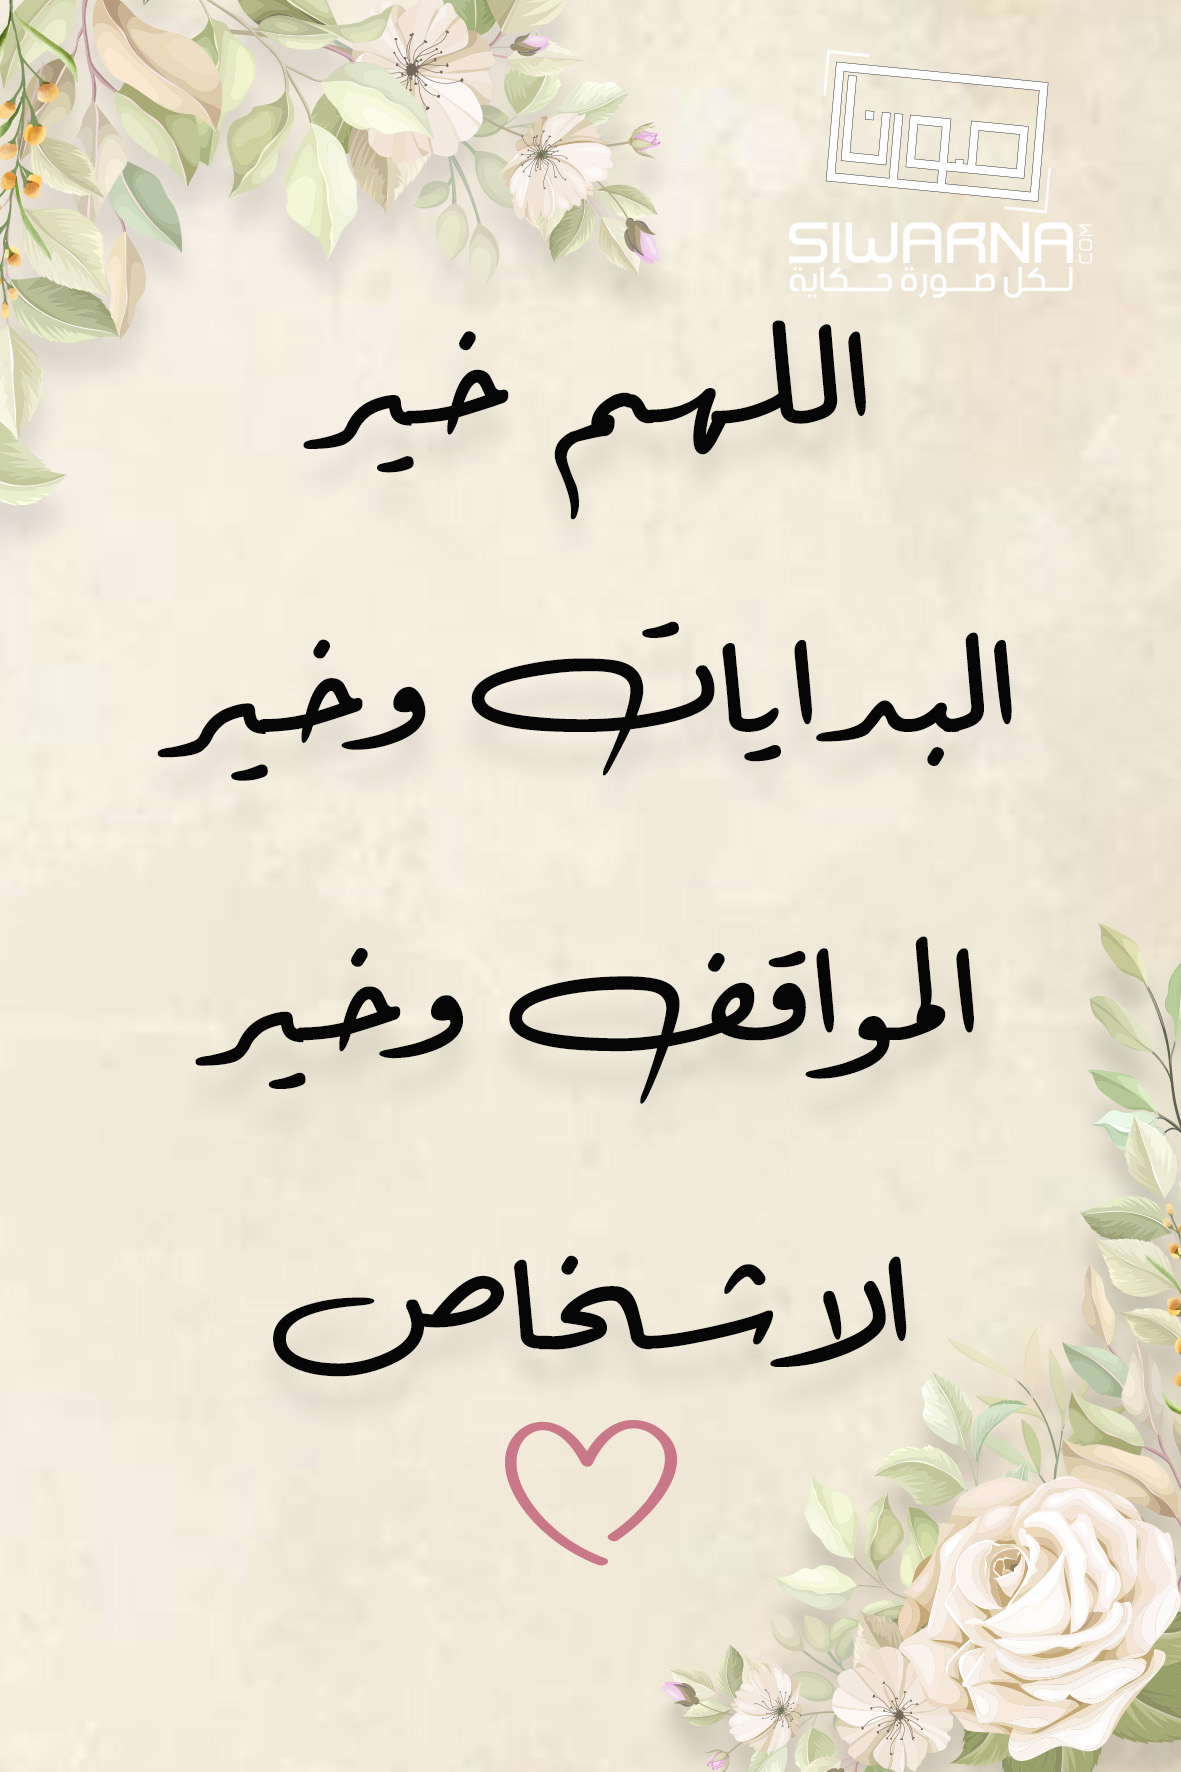 صورنا
SIWARNA.COM
لكل صورة حكاية
اللهم خير
البدايات وخير
المواقف وخير
الاشخاص